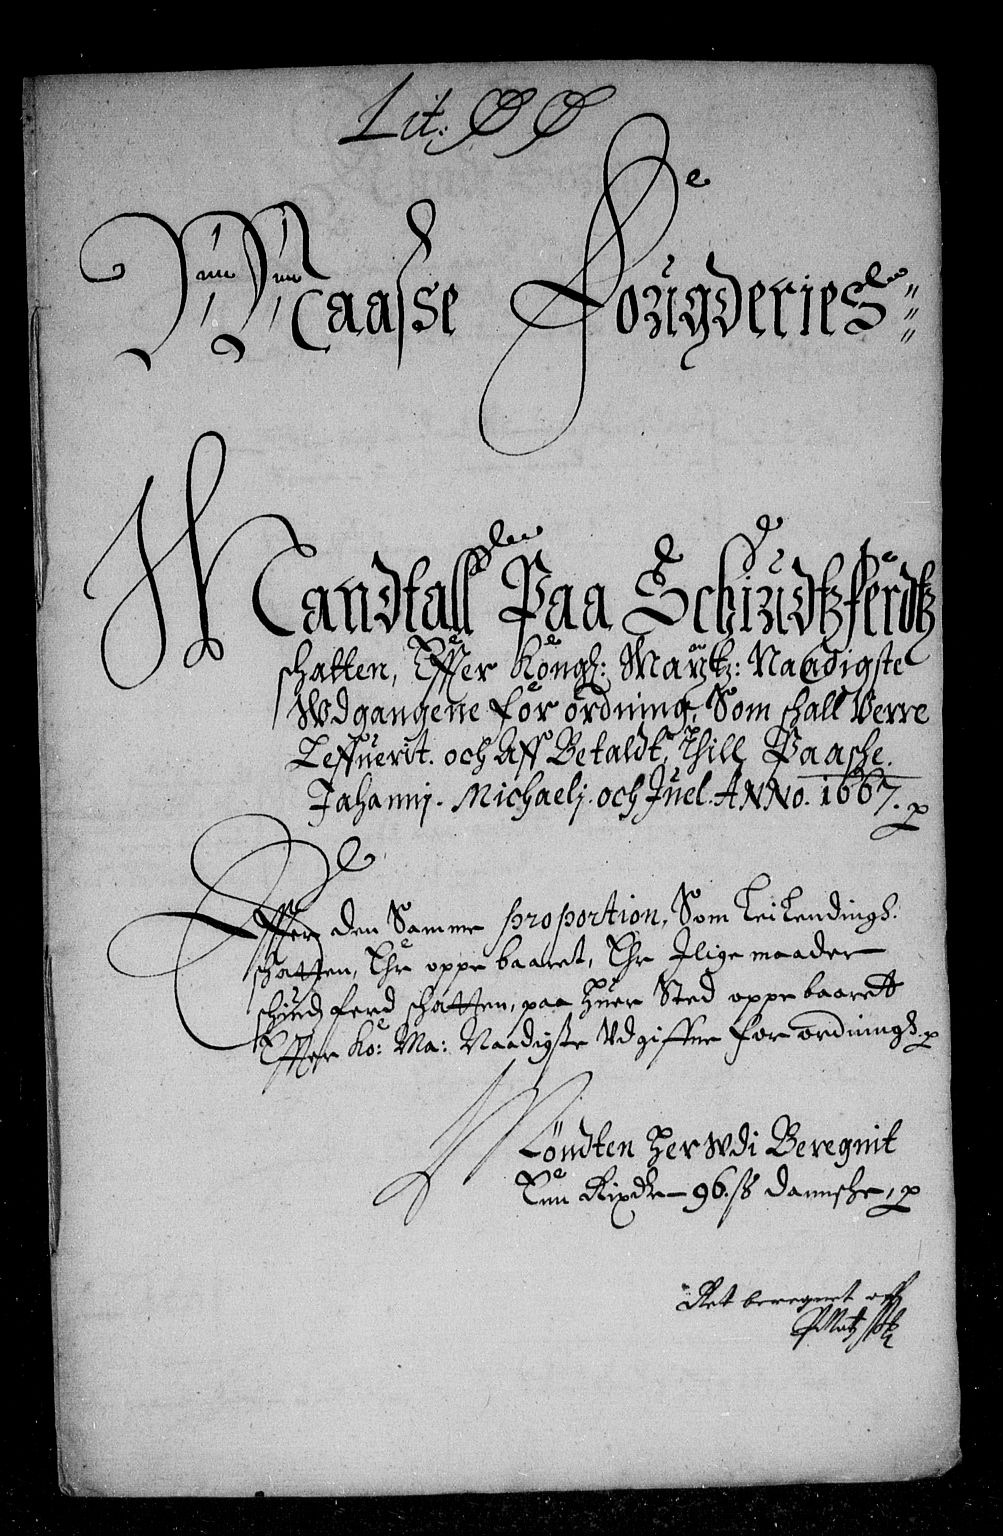 Lit: ØØ
Maasse Fougderies
Mandtall Paa Schiudtzferdtz
schatten, Effter Kongl: Maytz: Naadigste
Wdgangene for ordning, Som shall Verre
Leffuerit. och Aff Betaldt, Thill Paaske.
Johannj. Michaelj. och Juel. ANNo. 1667. p
Effter den Samme proportion, Som Leilendings:
schatten, Ehr oppe baaret, Ehr Jlige maader
schiuds ferd schatten, paa huer Sted oppe baarett
Effter Ko: Ma: Naadigste Vdgiffne for ordning. p
Möndten her wdi Beregnit
Enn Rixdr 96. sk dannske, p
Ret beregnet aff